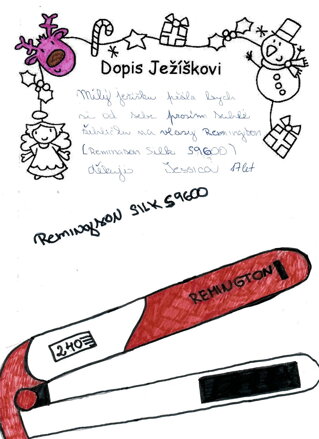 Dopis Ježíškovi
Milý Ježíšku přála bych
si od tebe prosím
žehličku na vlasy Remington
(Remington Silk S9600)
děkuju Jessica
Remington SILK S9600
REMINGTON
240